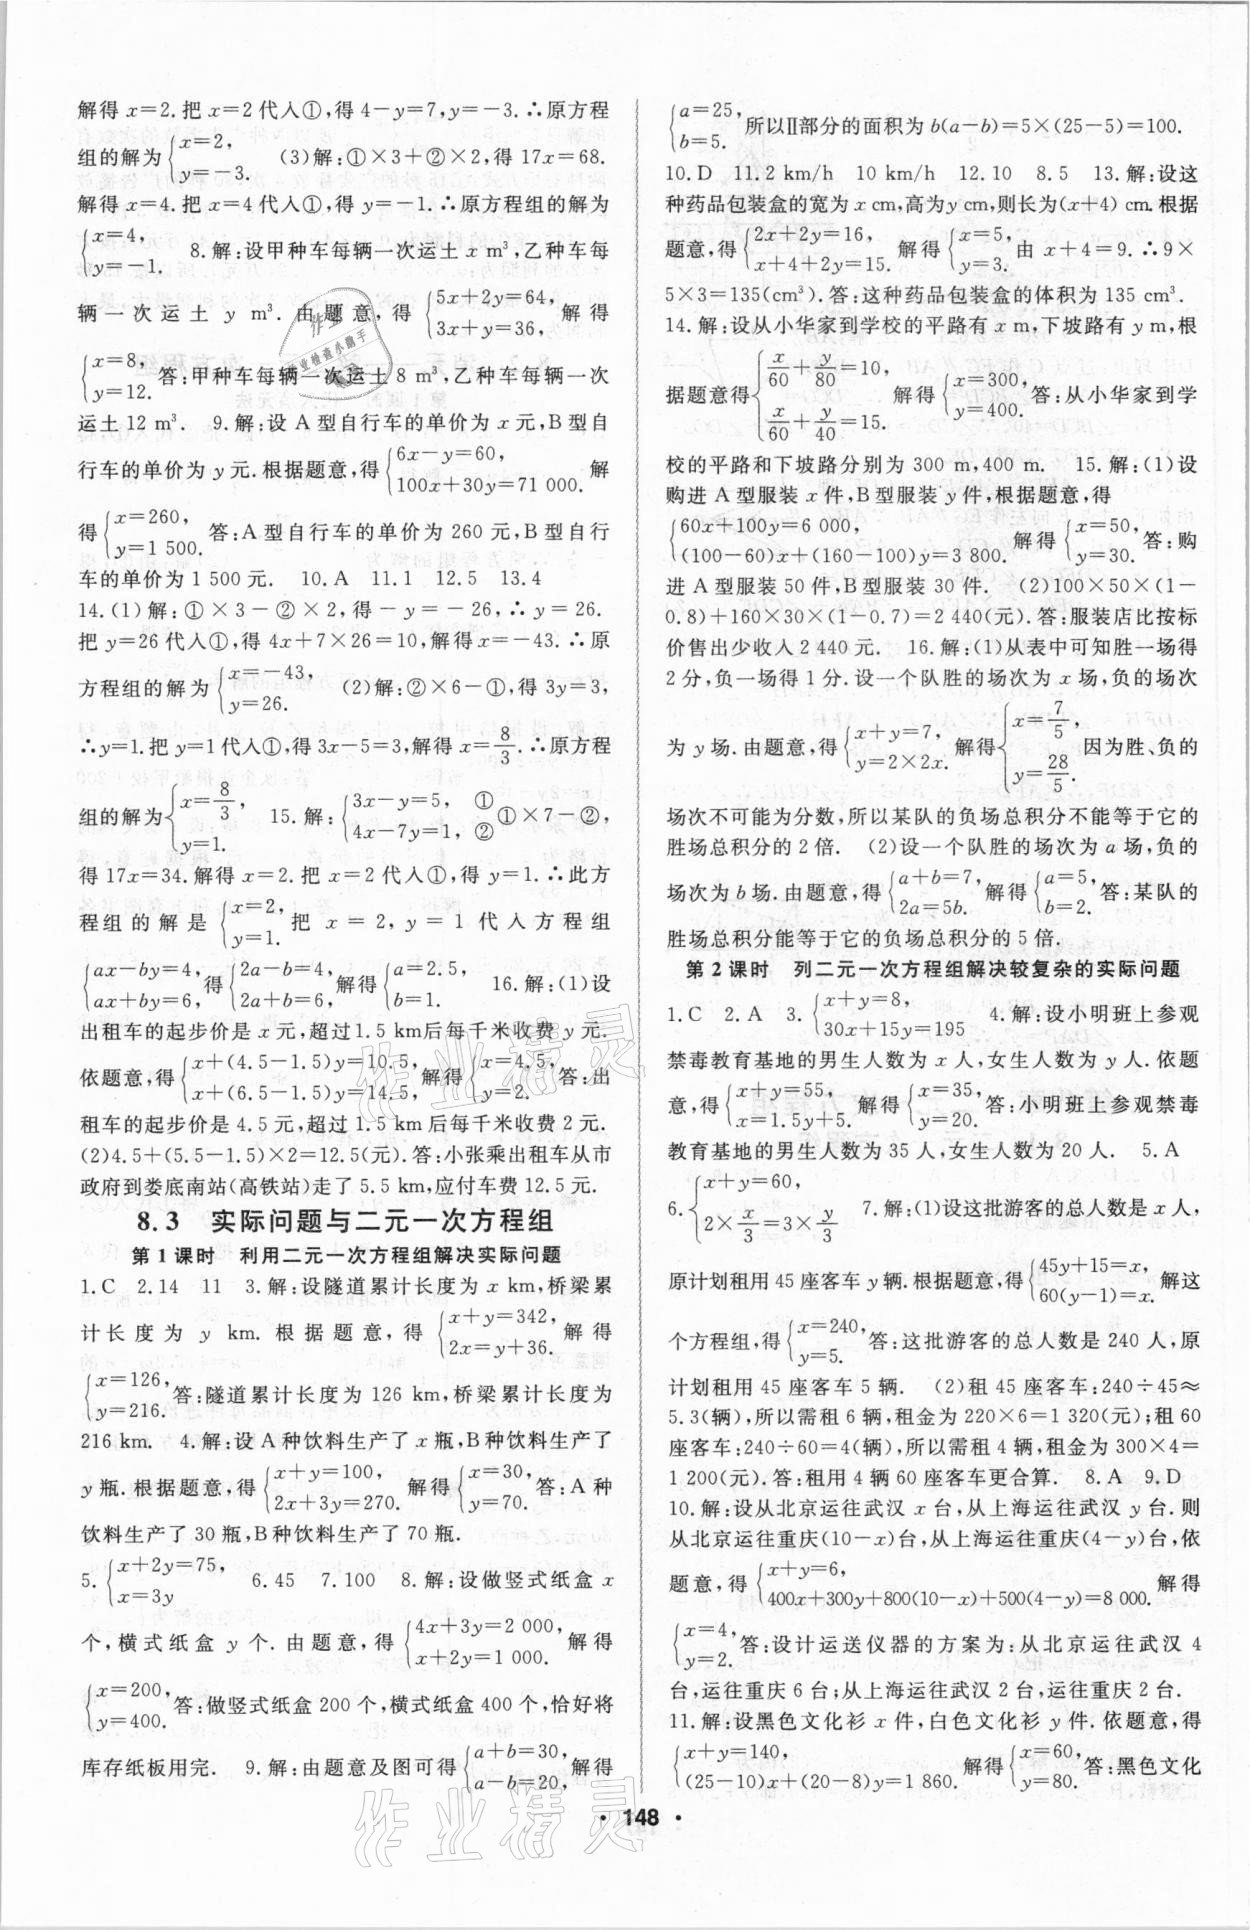 解得 x=2. 把 x=2 代入①,得 4-y=7,y=-3. ∴原方程
组的解为{x=2, y=-3. (3)解:①×3+②×2,得 17x=68.
解得 x=4. 把 x=4 代入①,得 y=-1. ∴原方程组的解为
{x=4, y=-1. 8. 解:设甲种车每辆一次运土 x m³,乙种车每
辆一次运土 y m³. 由题意,得{5x+2y=64, 3x+y=36, 解得
{x=8, y=12. 答:甲种车每辆一次运土 8 m³,乙种车每辆一次
运土 12 m³. 9. 解:设 A 型自行车的单价为 x 元,B 型自
行车的单价为 y 元. 根据题意,得{6x-y=60, 100x+30y=71 000. 解
得{x=260, y=1 500. 答:A 型自行车的单价为 260 元,B 型自行
车的单价为 1 500 元. 10. A 11. 1 12. 5 13. 4
14. (1)解:①×3-②×2,得-y=-26,∴y=26.
把 y=26 代入①,得 4x+7×26=10,解得 x=-43. ∴原
方程组的解为{x=-43, y=26. (2)解:②×6-①,得 3y=3,
∴y=1. 把 y=1 代入①,得 3x-5=3,解得 x=8/3. ∴原方程
组的解为{x=8/3, y=1. 15. 解:{3x-y=5, ① 4x-7y=1, ② ①×7-②,
得 17x=34. 解得 x=2. 把 x=2 代入①,得 y=1. ∴此方
程组的解是{x=2, y=1. 把 x=2,y=1 代入方程组
{ax-by=4, ax+by=6, 得{2a-b=4, 2a+b=6, 解得{a=2.5, b=1. 16. 解:(1)设
出租车的起步价是 x 元,超过 1.5 km后每千米收费 y 元.
依题意,得{x+(4.5-1.5)y=10.5, x+(6.5-1.5)y=14.5, 解得{x=4.5, y=2. 答:出
租车的起步价是 4.5 元,超过 1.5 km后每千米收费 2 元.
(2)4.5+(5.5-1.5)×2=12.5(元). 答:小张乘出租车从市
政府到娄底南站(高铁站)走了 5.5 km,应付车费 12.5 元.
8.3 实际问题与二元一次方程组
第 1 课时 利用二元一次方程组解决实际问题
1. C 2. 14 11 3. 解:设隧道累计长度为 x km,桥梁累
计长度为 y km. 根据题意,得{x+y=342, 2x=y+36. 解得
{x=126, y=216. 答:隧道累计长度为 126 km,桥梁累计长度为
216 km. 4. 解:设 A 种饮料生产了 x 瓶,B 种饮料生产了
y 瓶. 根据题意,得{x+y=100, 2x+3y=270. 解得{x=30, y=70. 答:A 种
饮料生产了 30 瓶,B 种饮料生产了 70 瓶.
5. {x+2y=75, x=3y 6. 45 7. 100 8. 解:设做竖式纸盒 x
个,横式纸盒 y 个. 由题意,得{4x+3y=2 000, x+2y=1 000. 解得
{x=200, y=400. 答:做竖式纸盒 200 个,横式纸盒 400 个,恰好将
库存纸板用完. 9. 解:由题意及图可得{a+b=30, a-b=20, 解得
{a=25, b=5. 所以Ⅱ部分的面积为 b(a-b)=5×(25-5)=100.
10. D 11. 2 km/h 10 km/h 12. 10 8.5 13. 解:设这
种药品包装盒的宽为 x cm,高为 y cm,则长为(x+4) cm. 根据
题意,得{2x+2y=16, x+4+2y=15. 解得{x=5, y=3. 由 x+4=9. ∴9×
5×3=135(cm³). 答:这种药品包装盒的体积为 135 cm³.
14. 解:设从小华家到学校的平路有 x m,下坡路有 y m,根
据题意得{x/60+y/80=10, x/60+y/40=15. 解得{x=300, y=400. 答:从小华家到学
校的平路和下坡路分别为 300 m,400 m. 15. 解:(1)设
购进 A 型服装 x 件,B 型服装 y 件,根据题意,得
{60x+100y=6 000, (100-60)x+(160-100)y=3 800. 解得{x=50, y=30. 答:购
进 A 型服装 50 件,B 型服装 30 件. (2)100×50×(1-
0.8)+160×30×(1-0.7)=2 440(元). 答:服装店比按标
价售出少收入 2 440 元. 16. 解:(1)从表中可知胜一场得
2 分,负一场得 1 分. 设一个队胜的场次为 x 场,负的场次
为 y 场. 由题意,得{x+y=7, y=2×2x. 解得{x=7/5, y=28/5. 因为胜、负的
场次不可能为分数,所以某队的负场总积分不能等于它的
胜场总积分的 2 倍. (2)设一个队胜的场次为 a 场,负的
场次为 b 场. 由题意,得{a+b=7, 2a=5b. 解得{a=5, b=2. 答:某队的
胜场总积分能等于它的负场总积分的 5 倍.
第 2 课时 列二元一次方程组解决较复杂的实际问题
1. C 2. A 3. {x+y=8, 30x+15y=195 4. 解:设小明班上参观
禁毒教育基地的男生人数为 x 人,女生人数为 y 人. 依题
意,得{x+y=55, x=1.5y+5. 解得{x=35, y=20. 答:小明班上参观禁毒
教育基地的男生人数为 35 人,女生人数为 20 人. 5. A
6. {x+y=60, 2×x/3=3×y/3 7. 解:(1)设这批游客的总人数是 x 人,
原计划租用 45 座客车 y 辆. 根据题意,得{45y+15=x, 60(y-1)=x. 解这
个方程组,得{x=240, y=5. 答:这批游客的总人数是 240 人,原
计划租用 45 座客车 5 辆. (2)租 45 座客车:240÷45≈
5.3(辆),所以需租 6 辆,租金为 220×6=1 320(元);租 60
座客车:240÷60=4(辆),所以需租 4 辆,租金为 300×4=
1 200(元). 答:租用 4 辆 60 座客车更合算. 8. A 9. D
10. 解:设从北京运往武汉 x 台,从上海运往武汉 y 台. 则
从北京运往重庆(10-x)台,从上海运往重庆(4-y)台,依
题意,得{x+y=6, 400x+300y+800(10-x)+500(4-y)=8 000. 解得
{x=4, y=2. 答:设计运送仪器的方案为:从北京运往武汉 4
台,运往重庆 6 台;从上海运往武汉 2 台,运往重庆 2 台.
11. 解:设黑色文化衫 x 件,白色文化衫 y 件. 依题意,得
{x+y=140, (25-10)x+(20-8)y=1 860. 解得{x=60, y=80. 答:黑色文化
· 148 ·
作业
业检查小助手
作业精灵
作业精灵